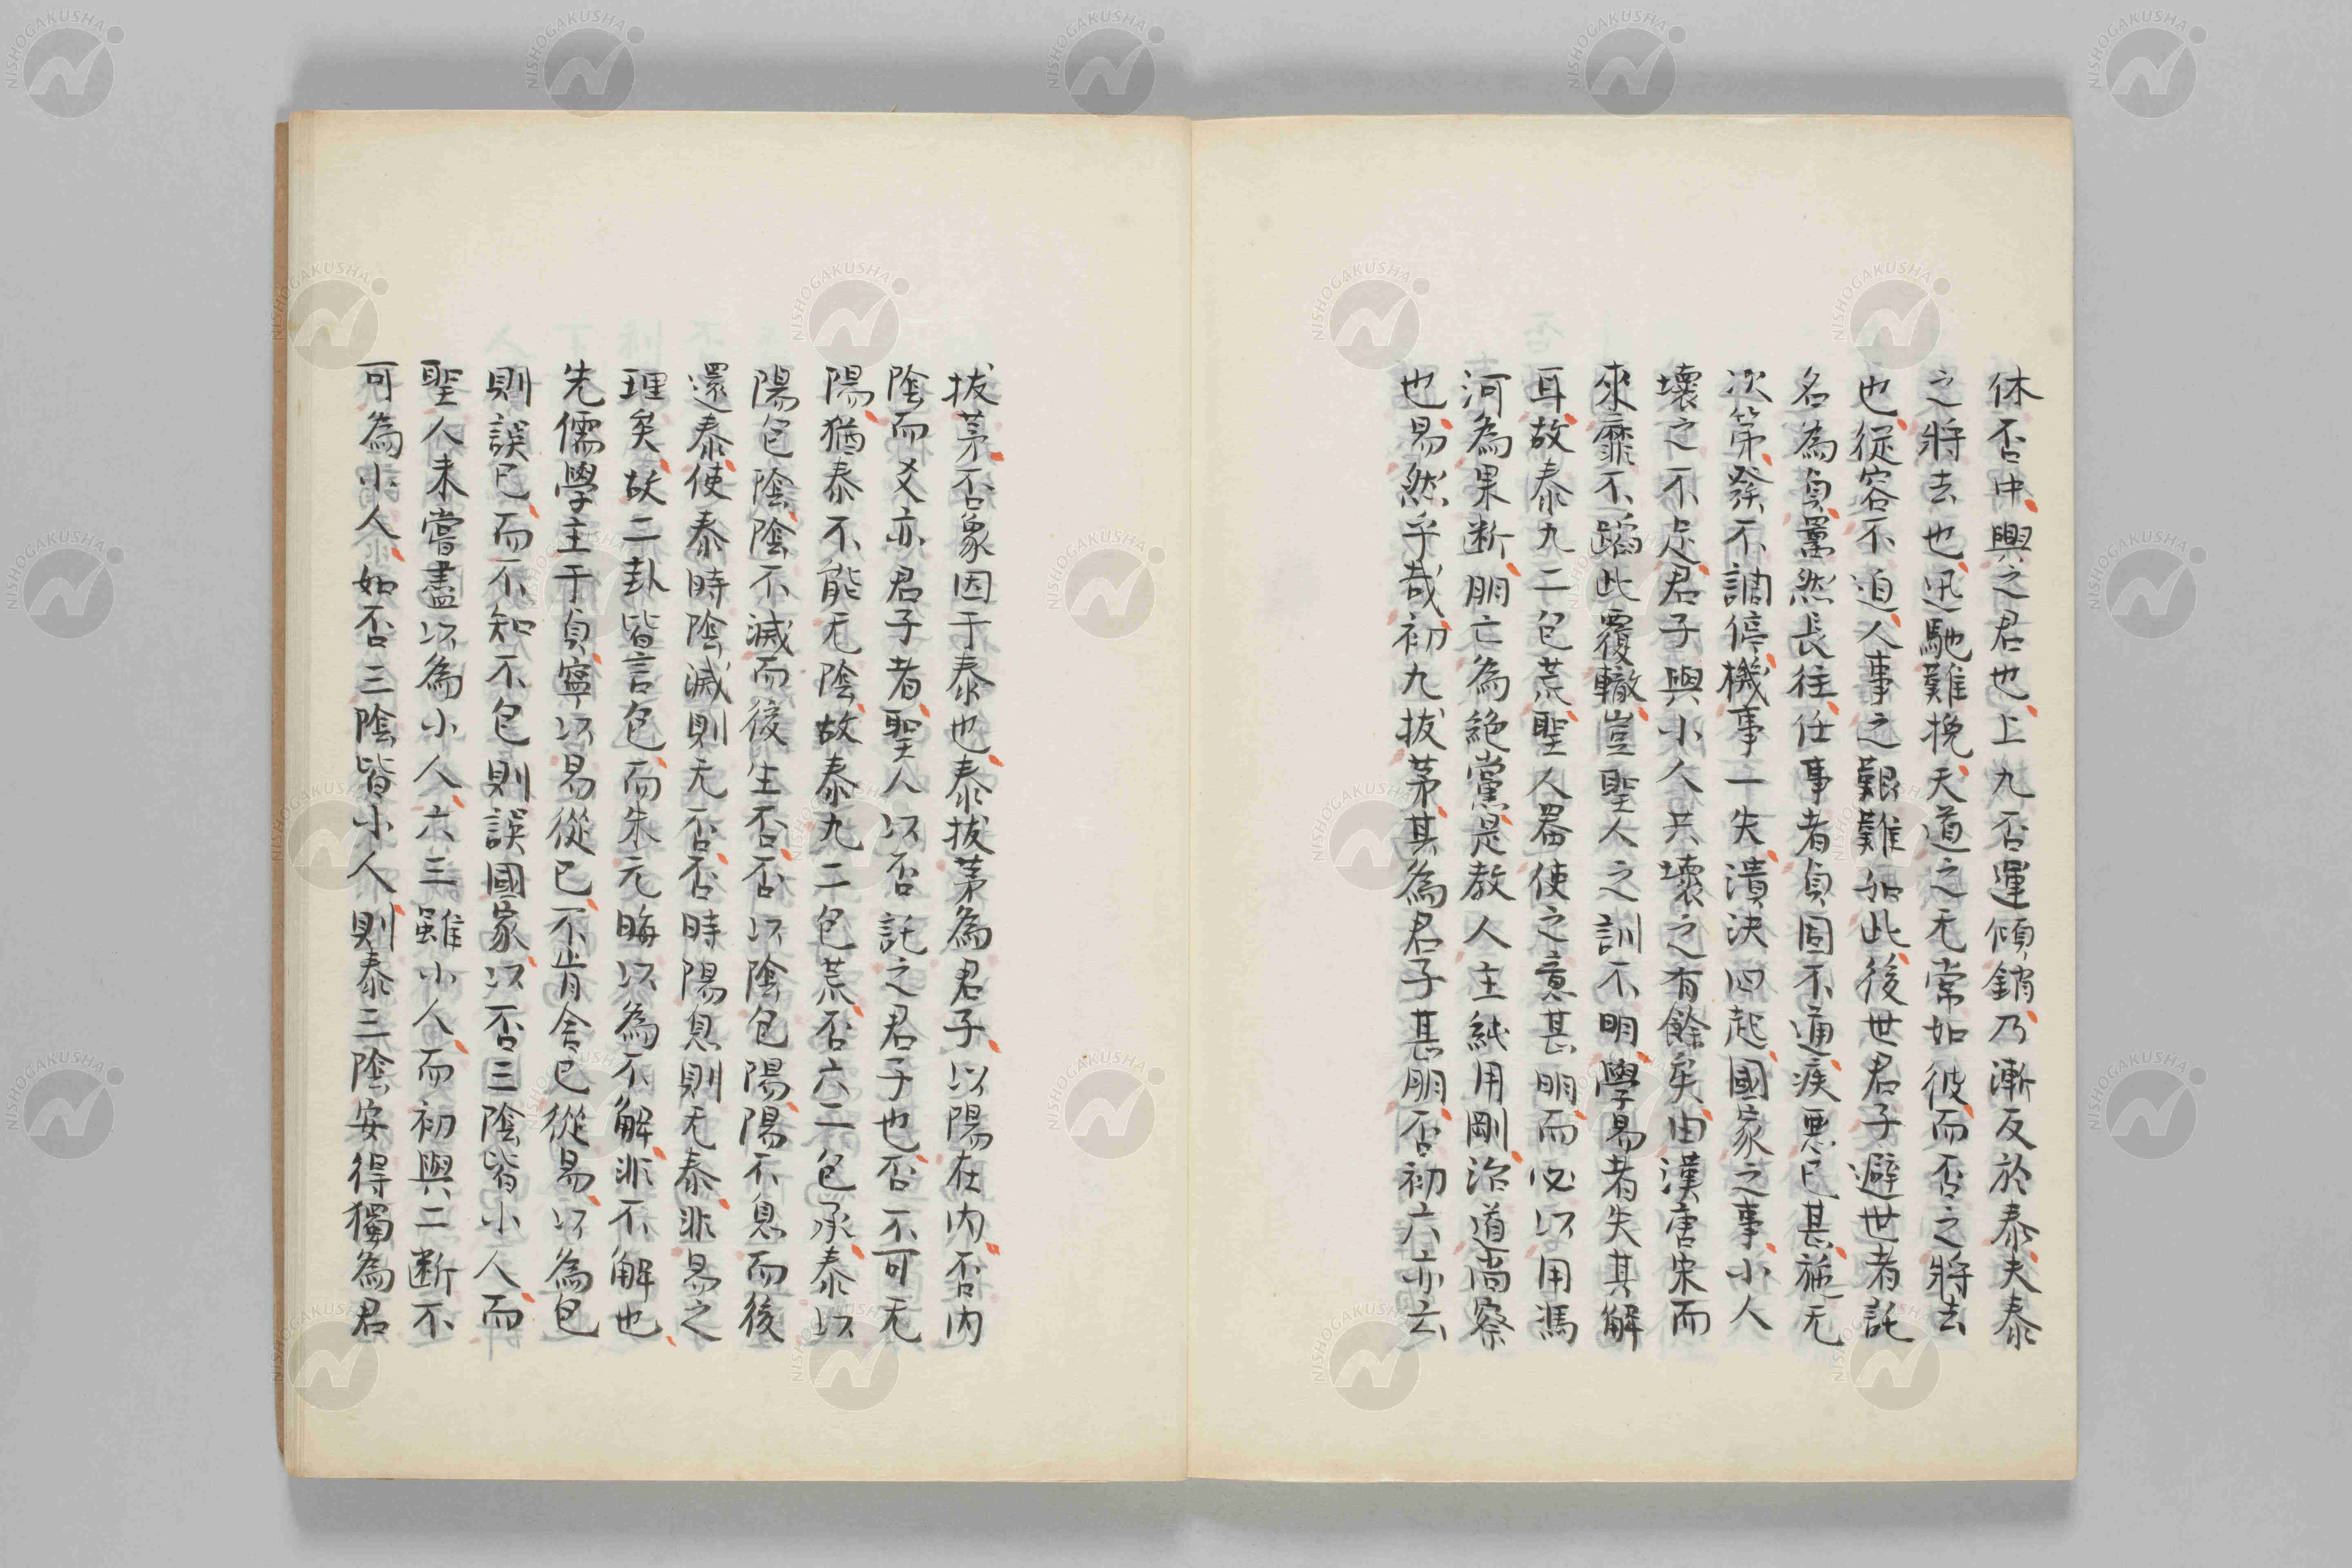 休否中興之君也上九否運傾銷乃漸反於泰夫泰
之將去也迅馳難挽天道之无常如彼而否之將去
也從容不迫人事之艱難如此後世君子避世者託
名為貞罵然長往任事者貞固不通疾悪已甚施无
次第發不調停機事一失潰決四起國家之事小人
壞之不足君子與小人共壞之有餘矣由漢唐宋而
來靡不蹈此覆轍豈聖人之訓不明學易者失其解
耳故泰九二包荒聖人器使之意甚明而必以用馮
河為果断朋亡為絕黨是教人主純用剛治道尚察
也易然乎哉初九拔茅其為君子甚明否初六亦云
拔茅否象因于泰也泰拔茅為君子以陽在内否内
陰而爻亦君子者聖人以否託之君子也否不可无
陽猶泰不能无陰故泰九二包荒否六二包承泰以
陽包陰陰不滅而後生否否以陰包陽陽不息而後
還泰使泰時陰滅則无否否時陽息則无泰非易之
理矣故二卦皆言包而朱元晦以為不解非不解也
先儒學主于貞寧以易從已不肯舍已從易以為包
則誤已而不知不包則誤國家以否三陰皆小人而
聖人未嘗盡以為小人六三雖小人而初與二断不
可為小人如否三陰皆小人則泰三陰安得獨為君
NISHOGAKUSHA